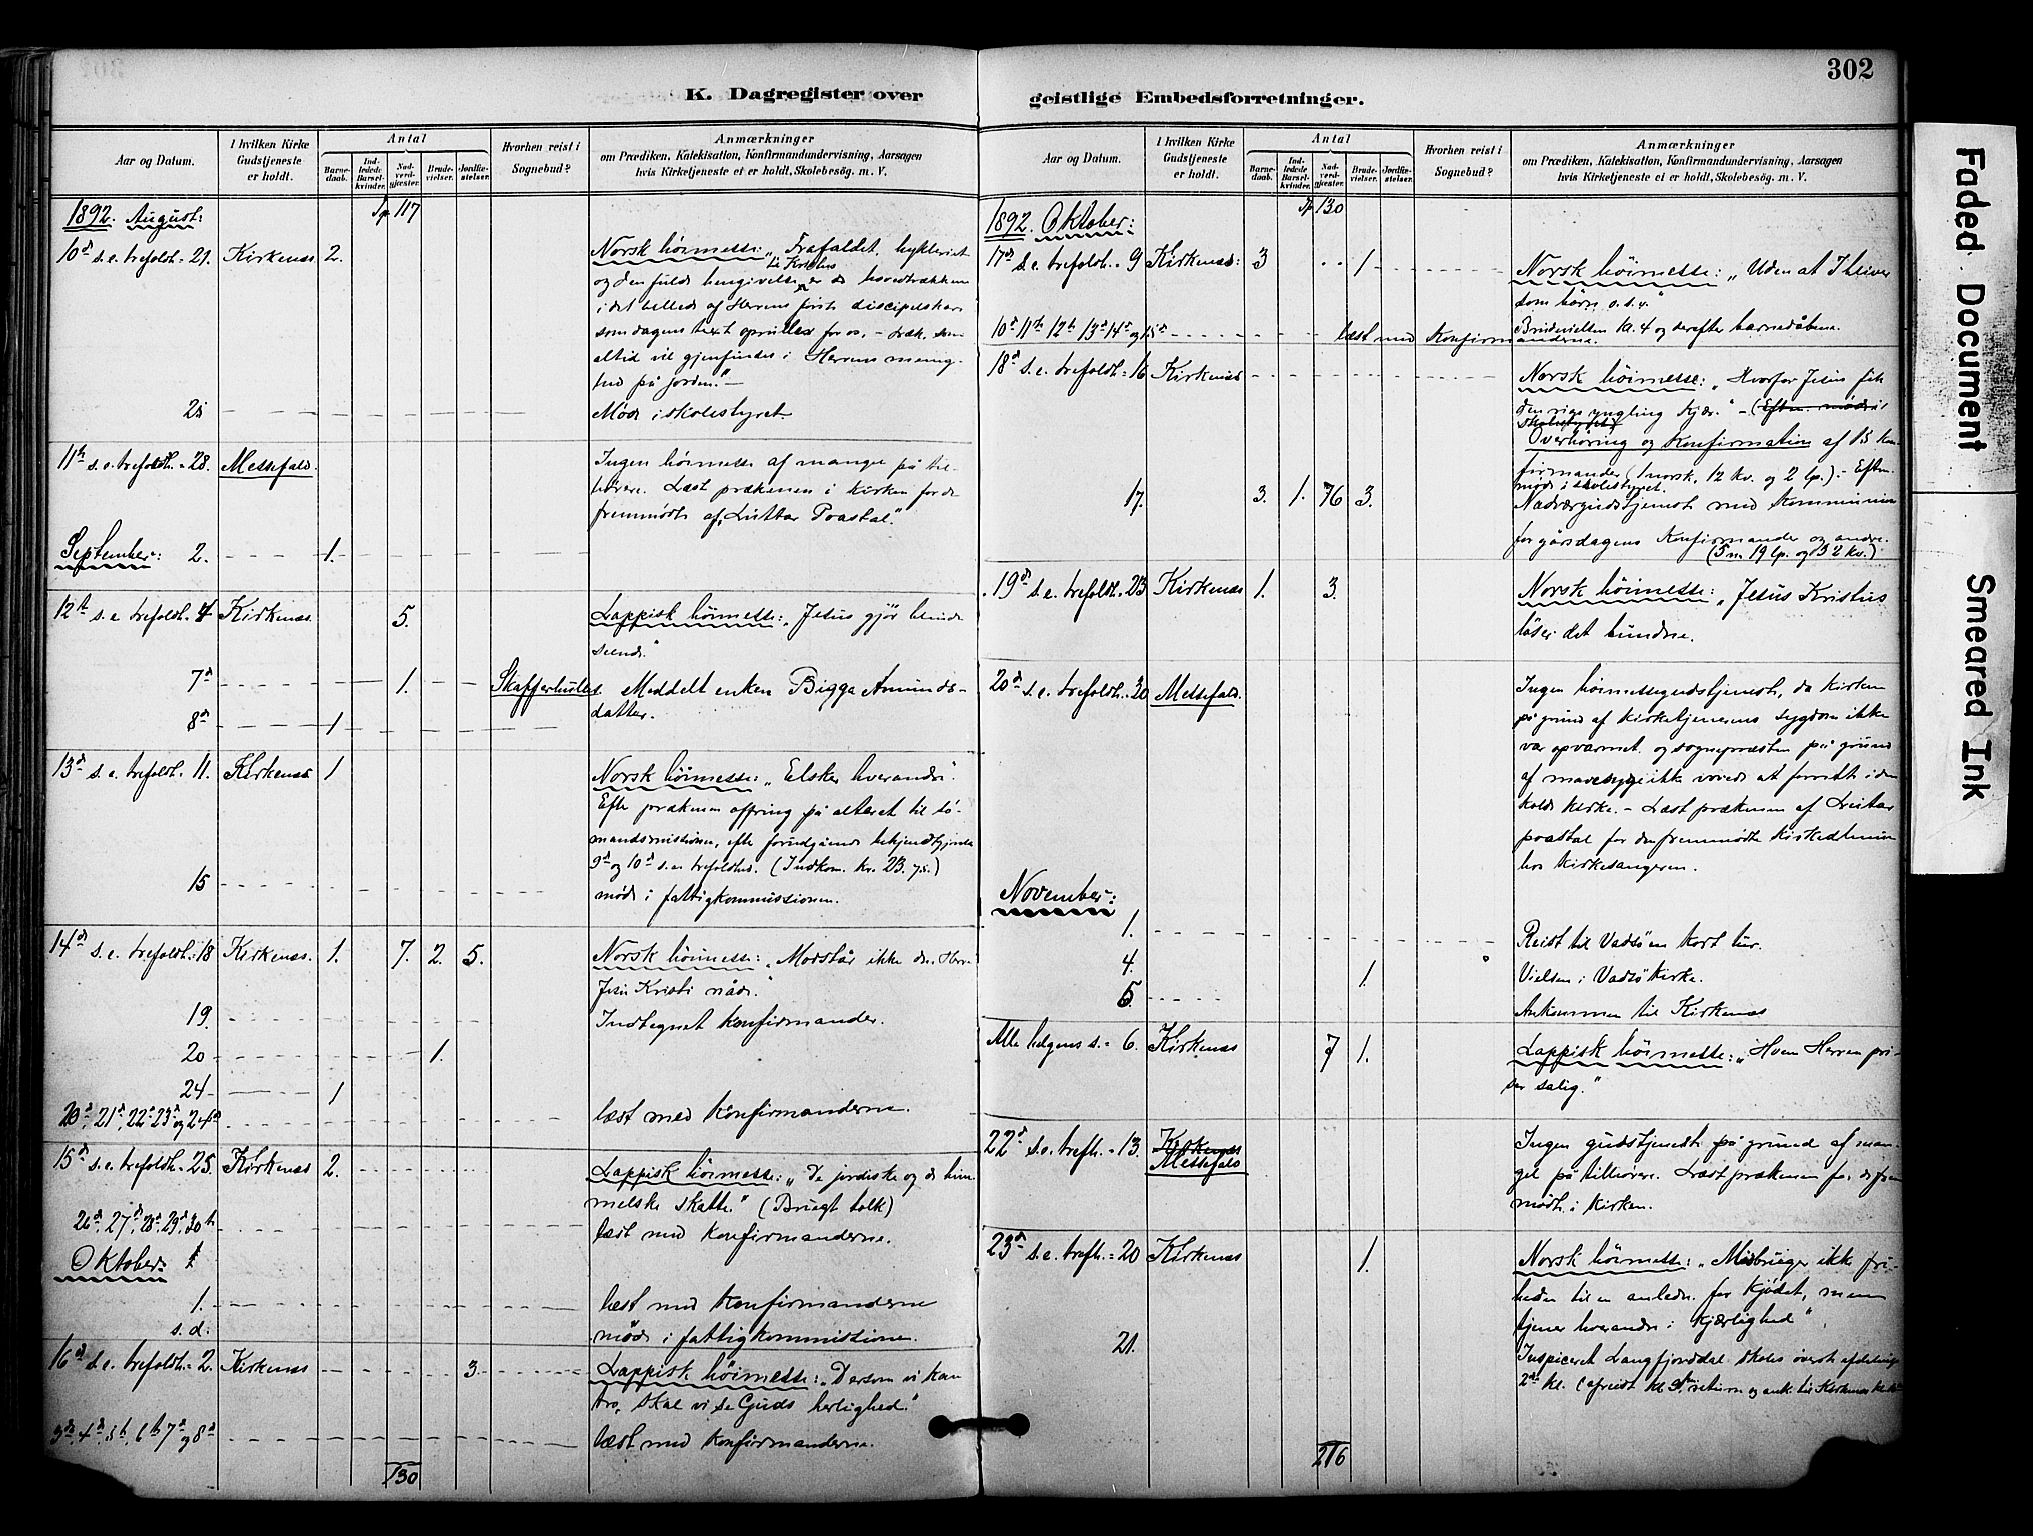 302
K. Dagregister over
geistlige Embedsforretninger.
Faded Document
Smeared Ink
Aar og Datum.
I hvilken Kirke Gudstjeneste er holdt.
Antal
Barne-daab.
Ind-ledede Barsel-kvinder.
Nad-verd-gjester.
Brude-vielser.
Jordfæ-stelser.
Hvorhen reist i Sognebud?
Anmærkninger
om Prædiken, Katekisation, Konfirmandundervisning, Aarsagen
hvis Kirketjeneste ei er holdt, Skolebesøg. m. V.
1892. August: Tp. 117
10d s. e. trefoldh. = 21. Kirkenæs 2. Norsk høimesse: „Frafaldet, hykleriet
til Kristus
og den fulde hengivelse er de hovedtrækken
i det billede af Herrens første discipelskar
som dagens text oprulles for os, – træk, som
altid vil gjenfindes i Herrens menig-
hed på jorden." –
Møde i skolestyret
11te s. e. trefoldh. = 28. Messefald. Ingen høimesse af mangel på til-
hørere. Læst prækenen i kirken for de
fremmødte af „Luthar Poastal".
September: 2. 1.
12te s. e. trefoldh. 4 Kirkenæs. 5. Lappisk høimesse: „Jesus gjør blinde
seende."
7d 1. Skafferhullet. Meddelt enken Bigga Amunds-
datter.
8d 1
13d s. e. trefoldh. 11. Kirkenæs 1 Norsk høimesse: „Elsker hverandre".
Efter prækenen offring på alteret til sø-
mandsmissionen, efter forudgående bekjendtgjørelse
9d og 10d s. e. trefoldhed. (Indkom. kr. 23. 75.)
15 møde i fattigkommissionen.
14d s. e. trefoldh. = 18 Kirkenæs. 1. 7. 2. 5. Norsk høimesse: „Modstår ikke den Herre
Jesu Kristi nåde."
19. Indtegnet konfirmander.
20 1.
24 1
20d, 21d, 22d 23d og 24d læst med konfirmanderne.
15d s. e. trefoldh. = 25. Kirkenæs 2. Lappisk høimesse: „De jordiske og de him-
melske skatte." (Brugt tolk)
26d, 27d, 28d, 29d, 30te læst med konfirmanderne.
Oktober: 1
1. læst med konfirmanderne
s. d. møde i fattigkommissionen.
16d s. e. trefoldh. = 2. Kirkenæs 3. Lappisk høimesse: „Dersom vi kan
tro, skal vi se Guds herlighed."
3d, 4d, 5te, 6te 7d og 8d læst med konfirmanderne.
130
Aar og Datum.
I hvilken Kirke Gudstjeneste er holdt.
Antal
Barne-daab.
Ind-ledede Barsel-kvinder.
Nad-verd-gjester.
Brude-vielser.
Jordfæ-stelser.
Hvorhen reist i Sognebud?
Anmærkninger
om Prædiken, Katekisation, Konfirmandundervisning, Aarsagen
hvis Kirketjeneste ei er holdt, Skolebesøg. m. V.
1892. Oktober: Tp 130
17d s. e. trefoldh. = 9 Kirkenæs: 3 1 Norsk høimesse: „Uden at I bliver
som børn o. s. v."
Brudevielsen kl. 4 og derefter barnedåbene.
10d 11te 12te 13d 14d og 15d læst med konfirmanderne.
18d s. e. trefoldh. = 16 Kirkenæs Norsk høimesse: „Hvorfor Jesus fik
den rige yngling kjær." – (Eftm. møde i
skolestyret)
Overhøring og konfirmation af 15 kon-
firmander (1 norsk, 12 kv. og 2 lp.) – Eftm.
møde i skolestyret.
17. 3. 1. 76 3. Nadverdgudstjeneste med kommunion
for gårsdagens konfirmander og andre.
(5 n. 19 lp. og 52 kv.)
19d s. e. trefoldh. = 23 Kirkenæs 1. 3. Norsk høimesse: „Jesus Kristus
løser det bundne.
20d s. e. trefoldh. = 30 Messefald. Ingen høimessegudstjeneste, da kirken
på grund af kirketjenerens sygdom ikke
var opvarmet og sognepræsten på grund
af mavesyge ikke vovede at forrette i den
kolde kirke. – Læst prækenen af Luthar
poastal for den fremmødte kirkealmue
hos kirkesangeren.
November:
1. Reist til Vadsø en kort tur.
4. 1. Vielsen i Vadsø kirke.
5. Ankommen til Kirkenæs
Alle helgens s. = 6. Kirkenæs 7 1. Lappisk høimesse: „Hvem Herren pri-
ser salig."
22d s. e. trefh. = 13. Kirkenæs
Messefald Ingen gudstjeneste på grund af man-
gel på tilhørere. Læst prækenen for de frem-
mødte i kirken.
23d s. e. trefh. = 20 Kirkenæs 1. Norsk høimesse: „Misbruger ikke fri-
heden til en anledn. for kjødet, men
tjener hverandre i kjærlighed".
21. Inspiceret Langfjorddal skoles øverste afdelings
2den kl. (afreist kl. 9 returen og ank. til Kirkenæs
216